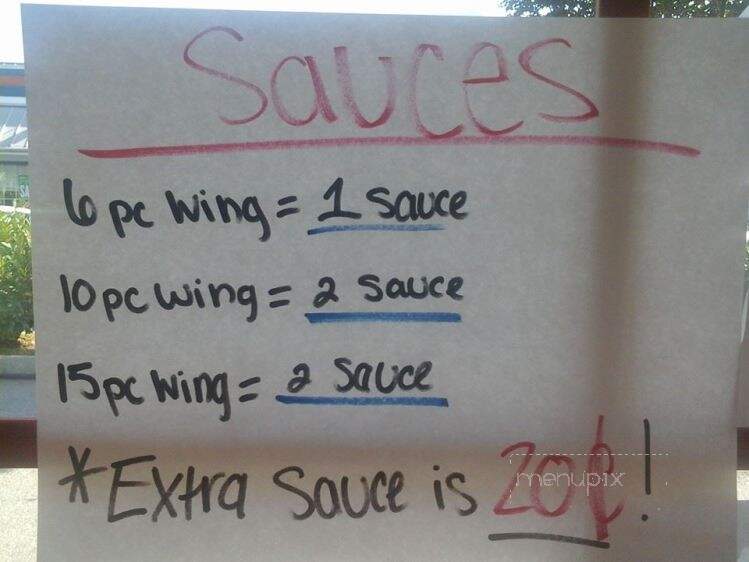 Sauces
6 pc wing = 1 sauce
10 pc wing = 2 sauce
15 pc wing = 2 sauce
*Extra sauce is 20¢!
menupix